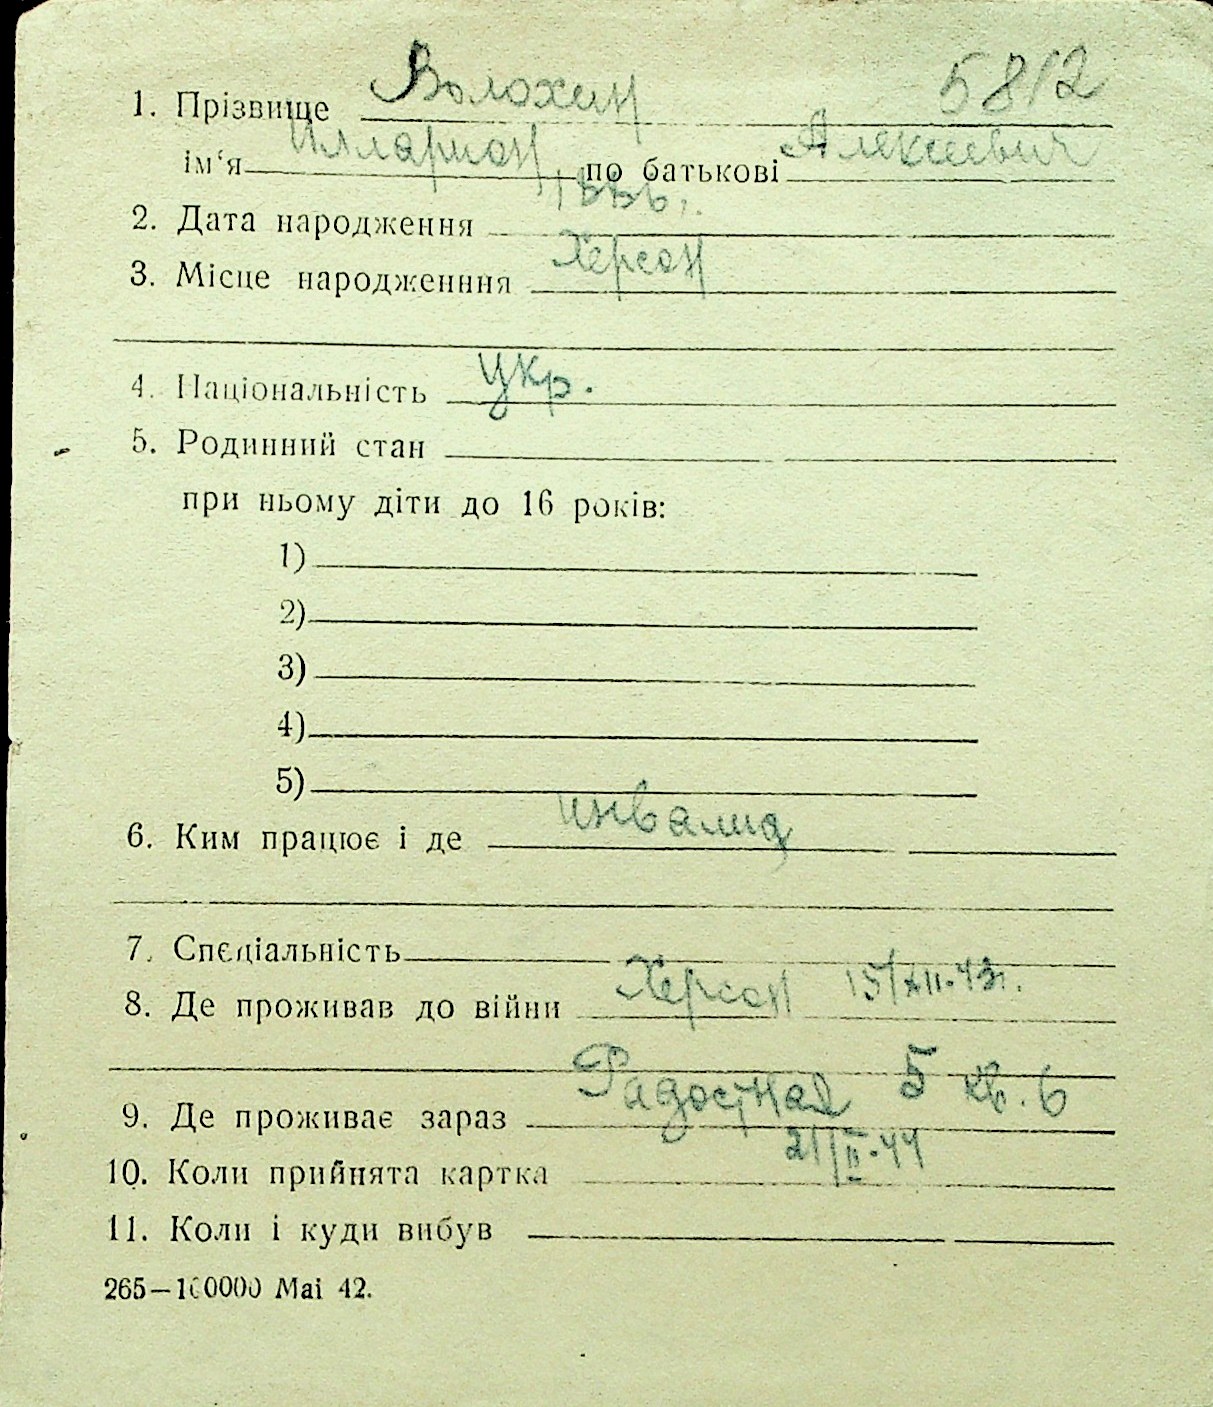 5812
1. Прізвище Волохин
ім‘я Илларион по батькові Алексеевич
2. Дата народження 1886 г.
3. Місце народженння Херсон
4. Національність укр.
5. Родинний стан
при ньому діти до 16 років:
1)
2)
3)
4)
5)
6. Ким працює і де инвалид
7. Спеціальність
8. Де проживав до війни Херсон 15/XII-43г.
9. Де проживає зараз Радостная 5 кв. 6
10. Коли прийнята картка 21/II-44
11. Коли і куди вибув
265—100000 Mai 42.